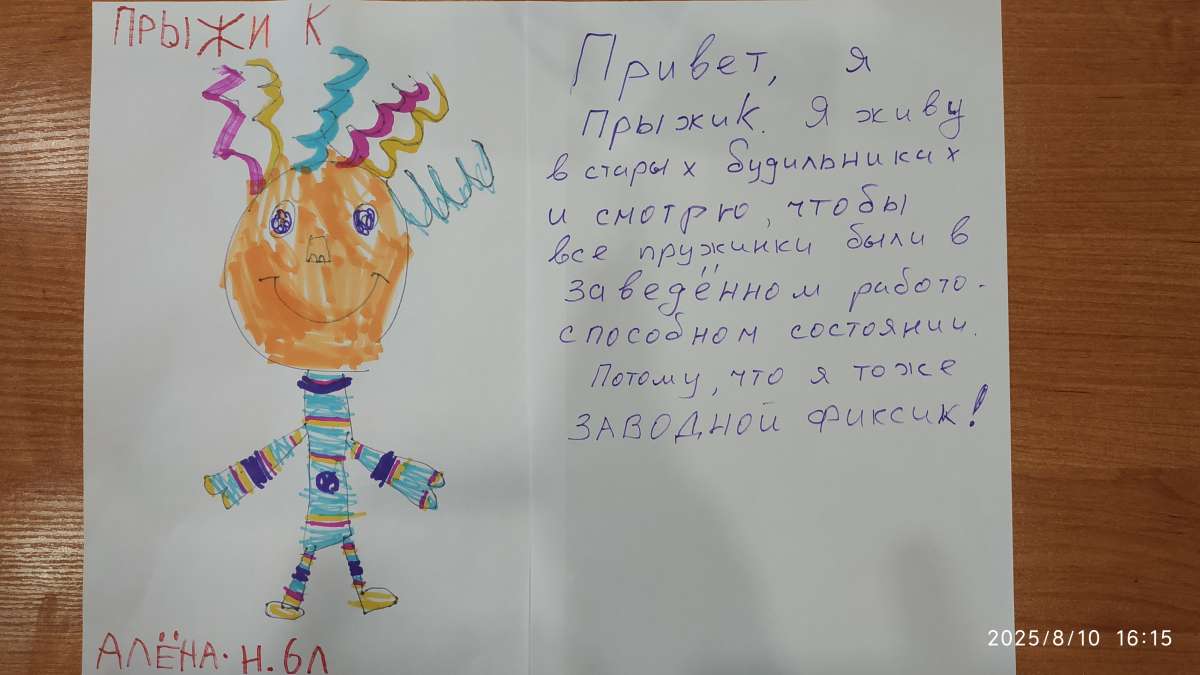 ПРЫЖИК
Привет, я
Прыжик. Я живу
в старых будильниках
и смотрю, чтобы
все пружинки были в
заведённом работо-
способном состоянии.
Потому, что я тоже
ЗАВОДНОЙ ФИКСИК!
АЛЁНА. Н. 6л
2025/8/10 16:15